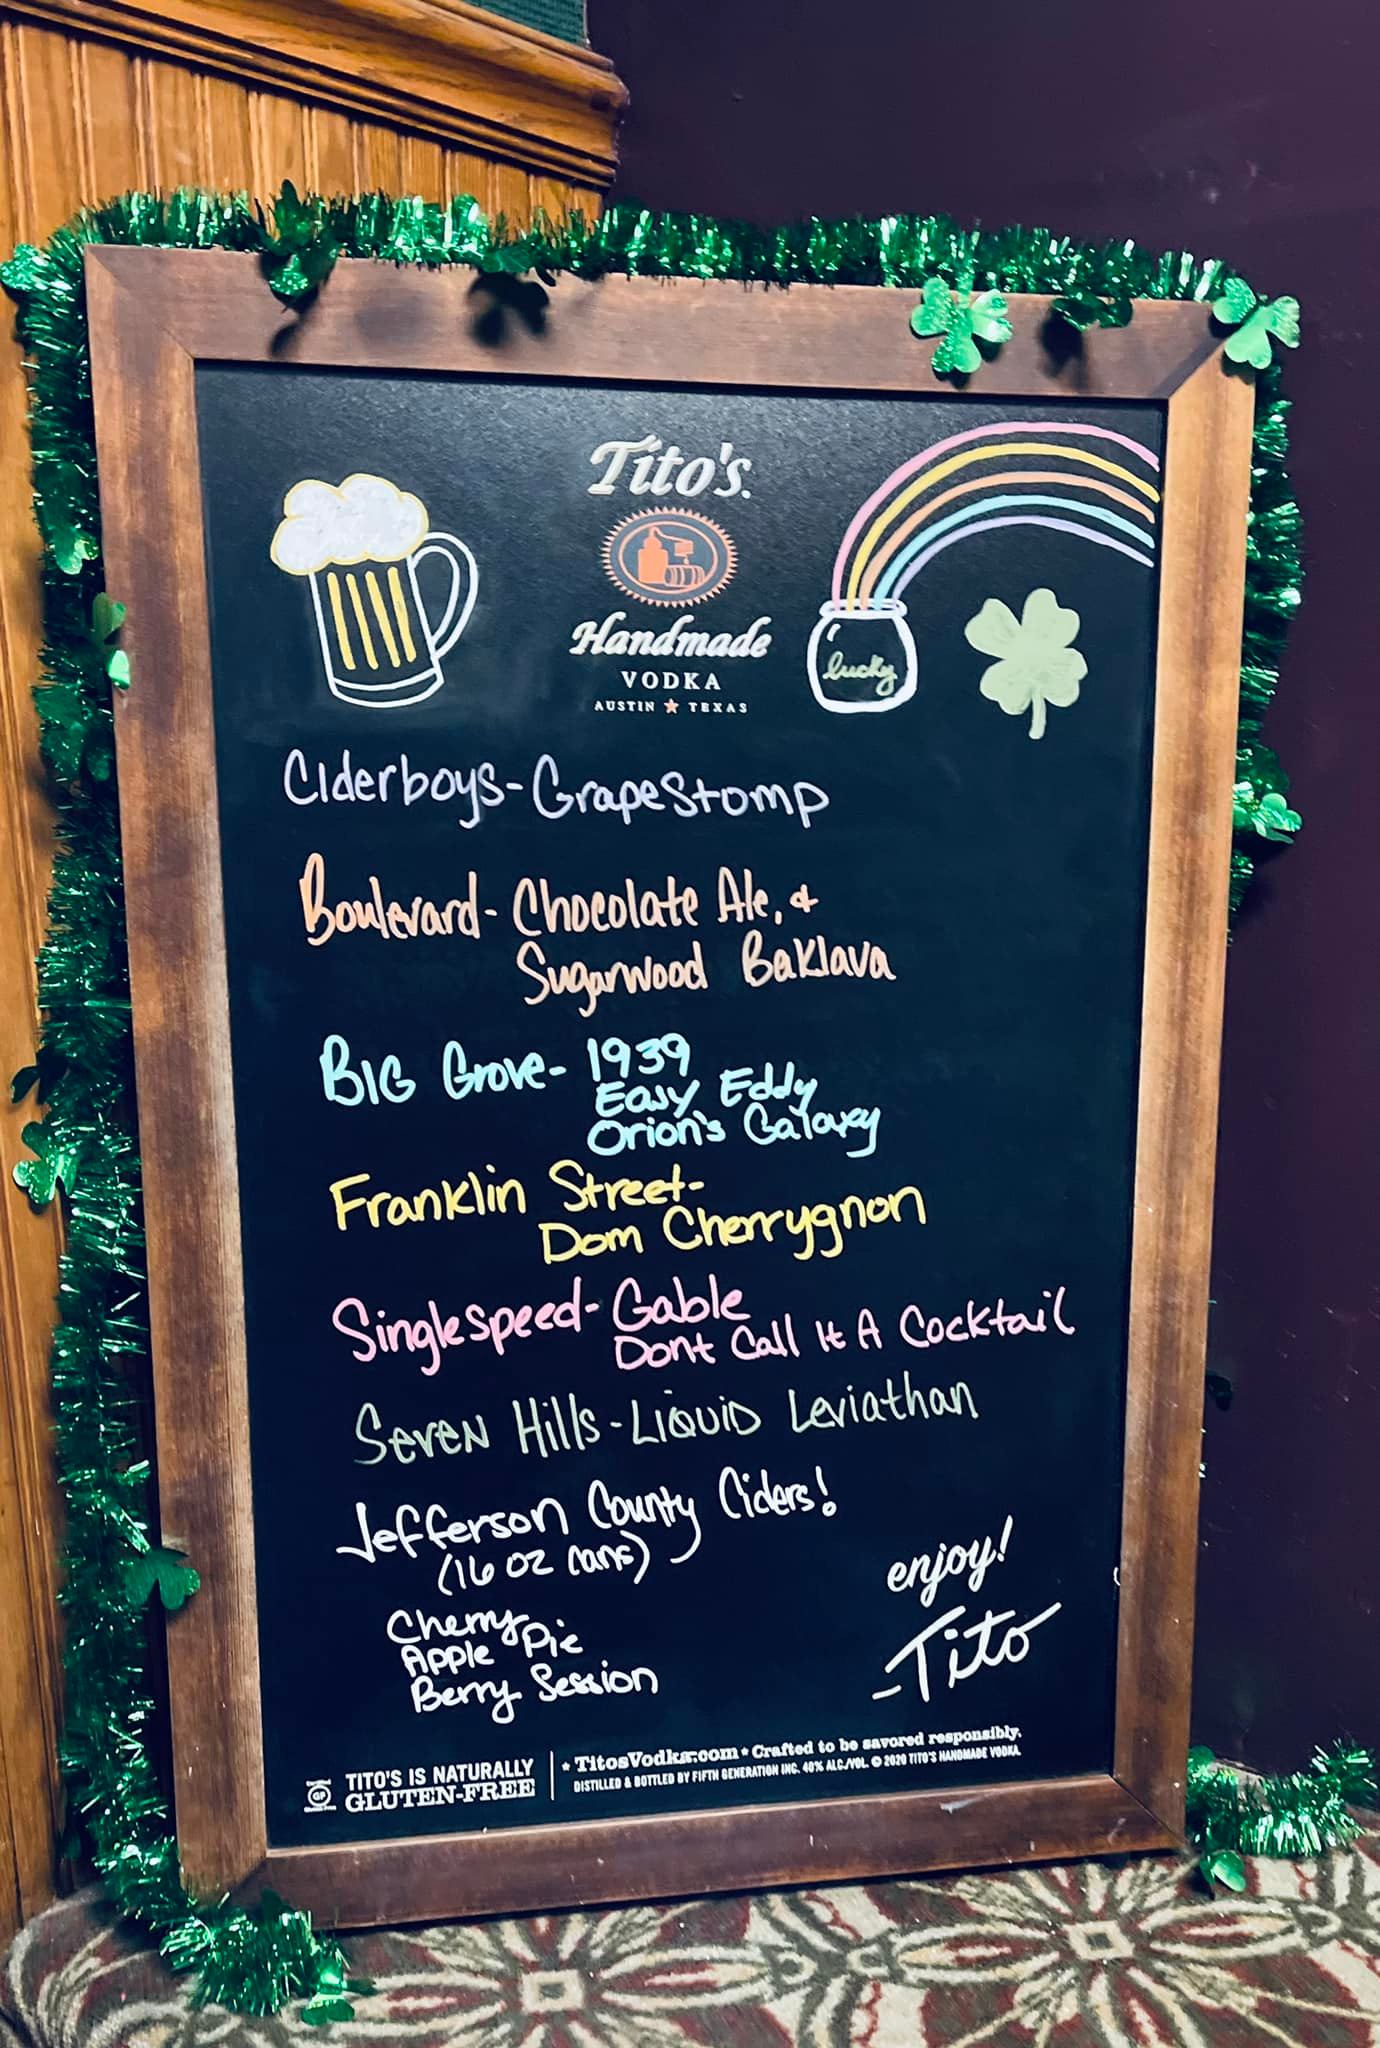 Tito's.
Handmade
VODKA
AUSTIN ★ TEXAS
lucky
Ciderboys-Grape Stomp
Boulevard- Chocolate Ale, &
Sugarwood Baklava
BIG Grove- 1939
Easy Eddy
Orion's Galaxy
Franklin Street-
Dom Cherrygnon
Singlespeed- Gable
Dont Call It A Cocktail
Seven Hills-Liquid Leviathan
Jefferson County Ciders!
(16 oz cans)
Cherry
Apple Pie
Berry Session
enjoy!
-Tito
GF
TITO'S IS NATURALLY
GLUTEN-FREE
★ TitosVodka.com ★ Crafted to be savored responsibly.
DISTILLED & BOTTLED BY FIFTH GENERATION INC. 40% ALC./VOL. © 2020 TITO'S HANDMADE VODKA.